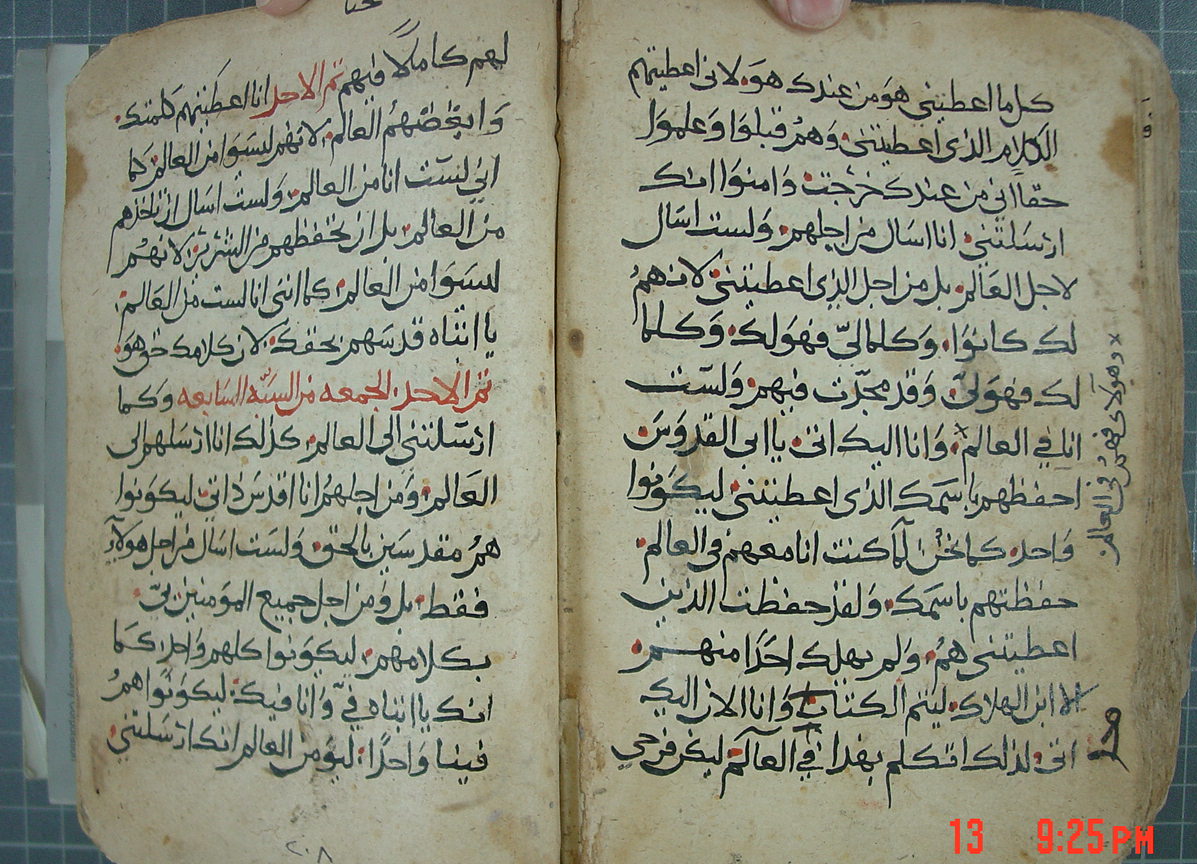 كل ما اعطيتني هو من عندك هو، لاني اعطيتهم
الكلام الذي اعطيتني وهم قبلوا وعلموا
حقا اني من عندك خرجت وامنوا انك
ارسلتني، انا اسال من اجلهم، ولست اسال
لاجل العالم، بل من اجل الذي اعطيتني لانهم
لك كانوا، وكلما لي فهو لك، وكلما
لك فهو لي، وقد مجدت فيهم، ولست
انا في العالم، وانا اليك اتي، يا ابي القدوس
احفظهم باسمك الذي اعطيتني ليكونوا
واحد، كما نحن لما كنت انا معهم في العالم
حفظتهم باسمك، ولقد حفظت الذين
اعطيتني هم، ولم يهلك احدا منهم
الا ابن الهلاك، ليتم الكتاب، وانا الان اليك
اتي، لذلك اتكلم بهذا في العالم ليكن فرحي
وهولاي فهم في العالم
لهم كاملا فيهم تم الاحد انا اعطيتهم كلمتك
وابغضهم العالم، لانهم ليسوا من العالم، كما
اني لست انا من العالم، ولست اسال ان تاخذهم
من العالم، بل ان تحفظهم من الشرير، لانهم
ليسوا من العالم، كما انني انا لست من العالم،
يا ابتاه قدسهم بحقك، لان كلامك حق هو،
تم الاحد، الجمعه من السنه السابعه وكما
ارسلتني الى العالم، كذلك انا ارسلهم الى
العالم، ومن اجلهم انا اقدس ذاتي ليكونوا
هم مقدسين بالحق، ولست اسال من اجل هولاء
فقط، بل ومن اجل جميع المومنين بي
بكلامهم، ليكونوا كلهم واحد، كما
انك يا ابتاه في وانا فيك، ليكونوا هم
فينا واحدا، ليومن العالم انك ارسلتني
٢٠٨
13 9:25PM